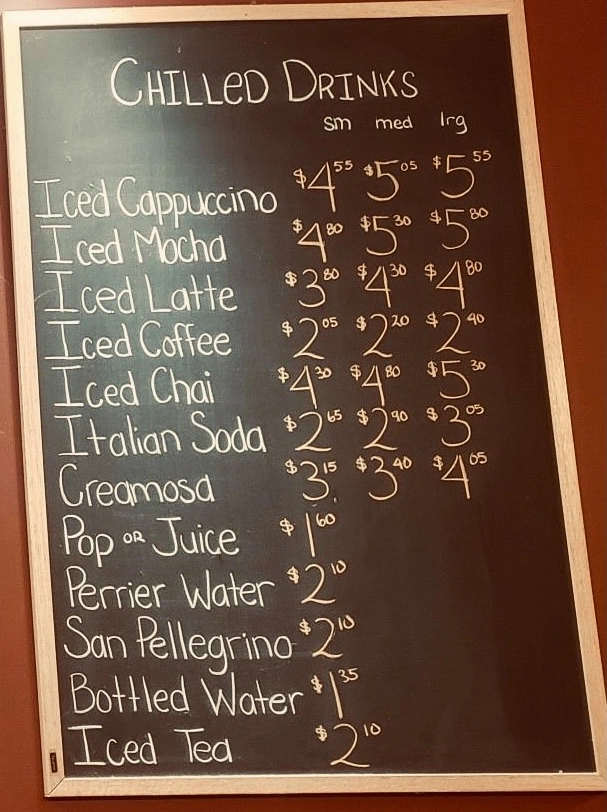 CHILLED DRINKS
sm med lrg
Iced Cappuccino $4.55 $5.05 $5.55
Iced Mocha $4.80 $5.30 $5.80
Iced Latte $3.80 $4.30 $4.80
Iced Coffee $2.05 $2.20 $2.40
Iced Chai $4.30 $4.80 $5.30
Italian Soda $2.65 $2.90 $3.05
Creamosa $3.15 $3.40 $4.05
Pop OR Juice $1.60
Perrier Water $2.10
San Pellegrino $2.10
Bottled Water $1.35
Iced Tea $2.10